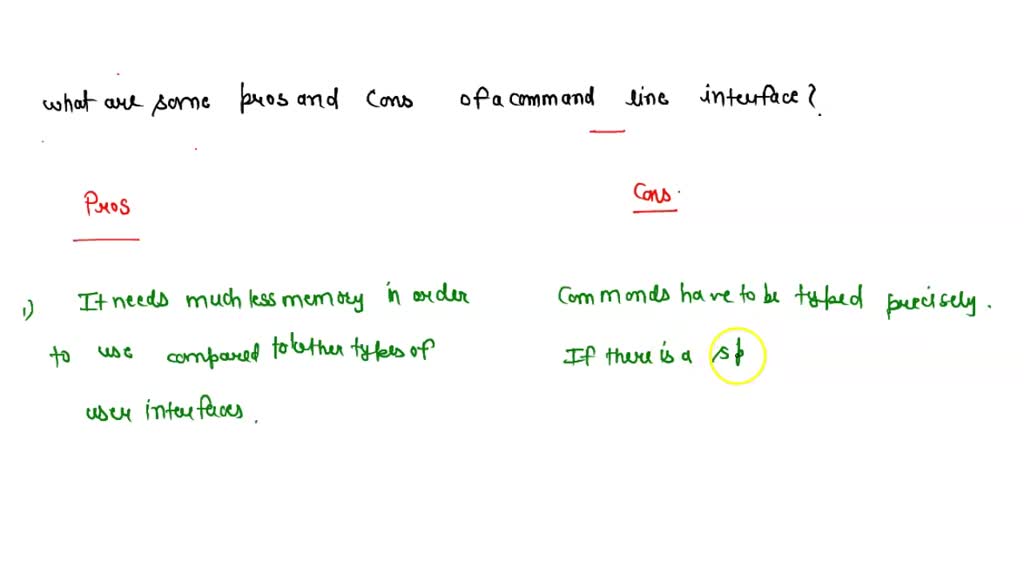 what are some pros and cons of a command line interface?
Pros
Cons.
1) It needs much less memory in order
to use compared to other types of
user interfaces.
Commonds have to be typed precisely.
If there is a sp